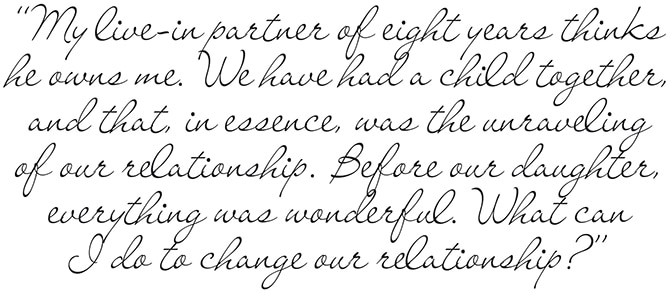 “My live-in partner of eight years thinks
he owns me. We have had a child together,
and that, in essence, was the unraveling
of our relationship. Before our daughter,
everything was wonderful. What can
I do to change our relationship?”